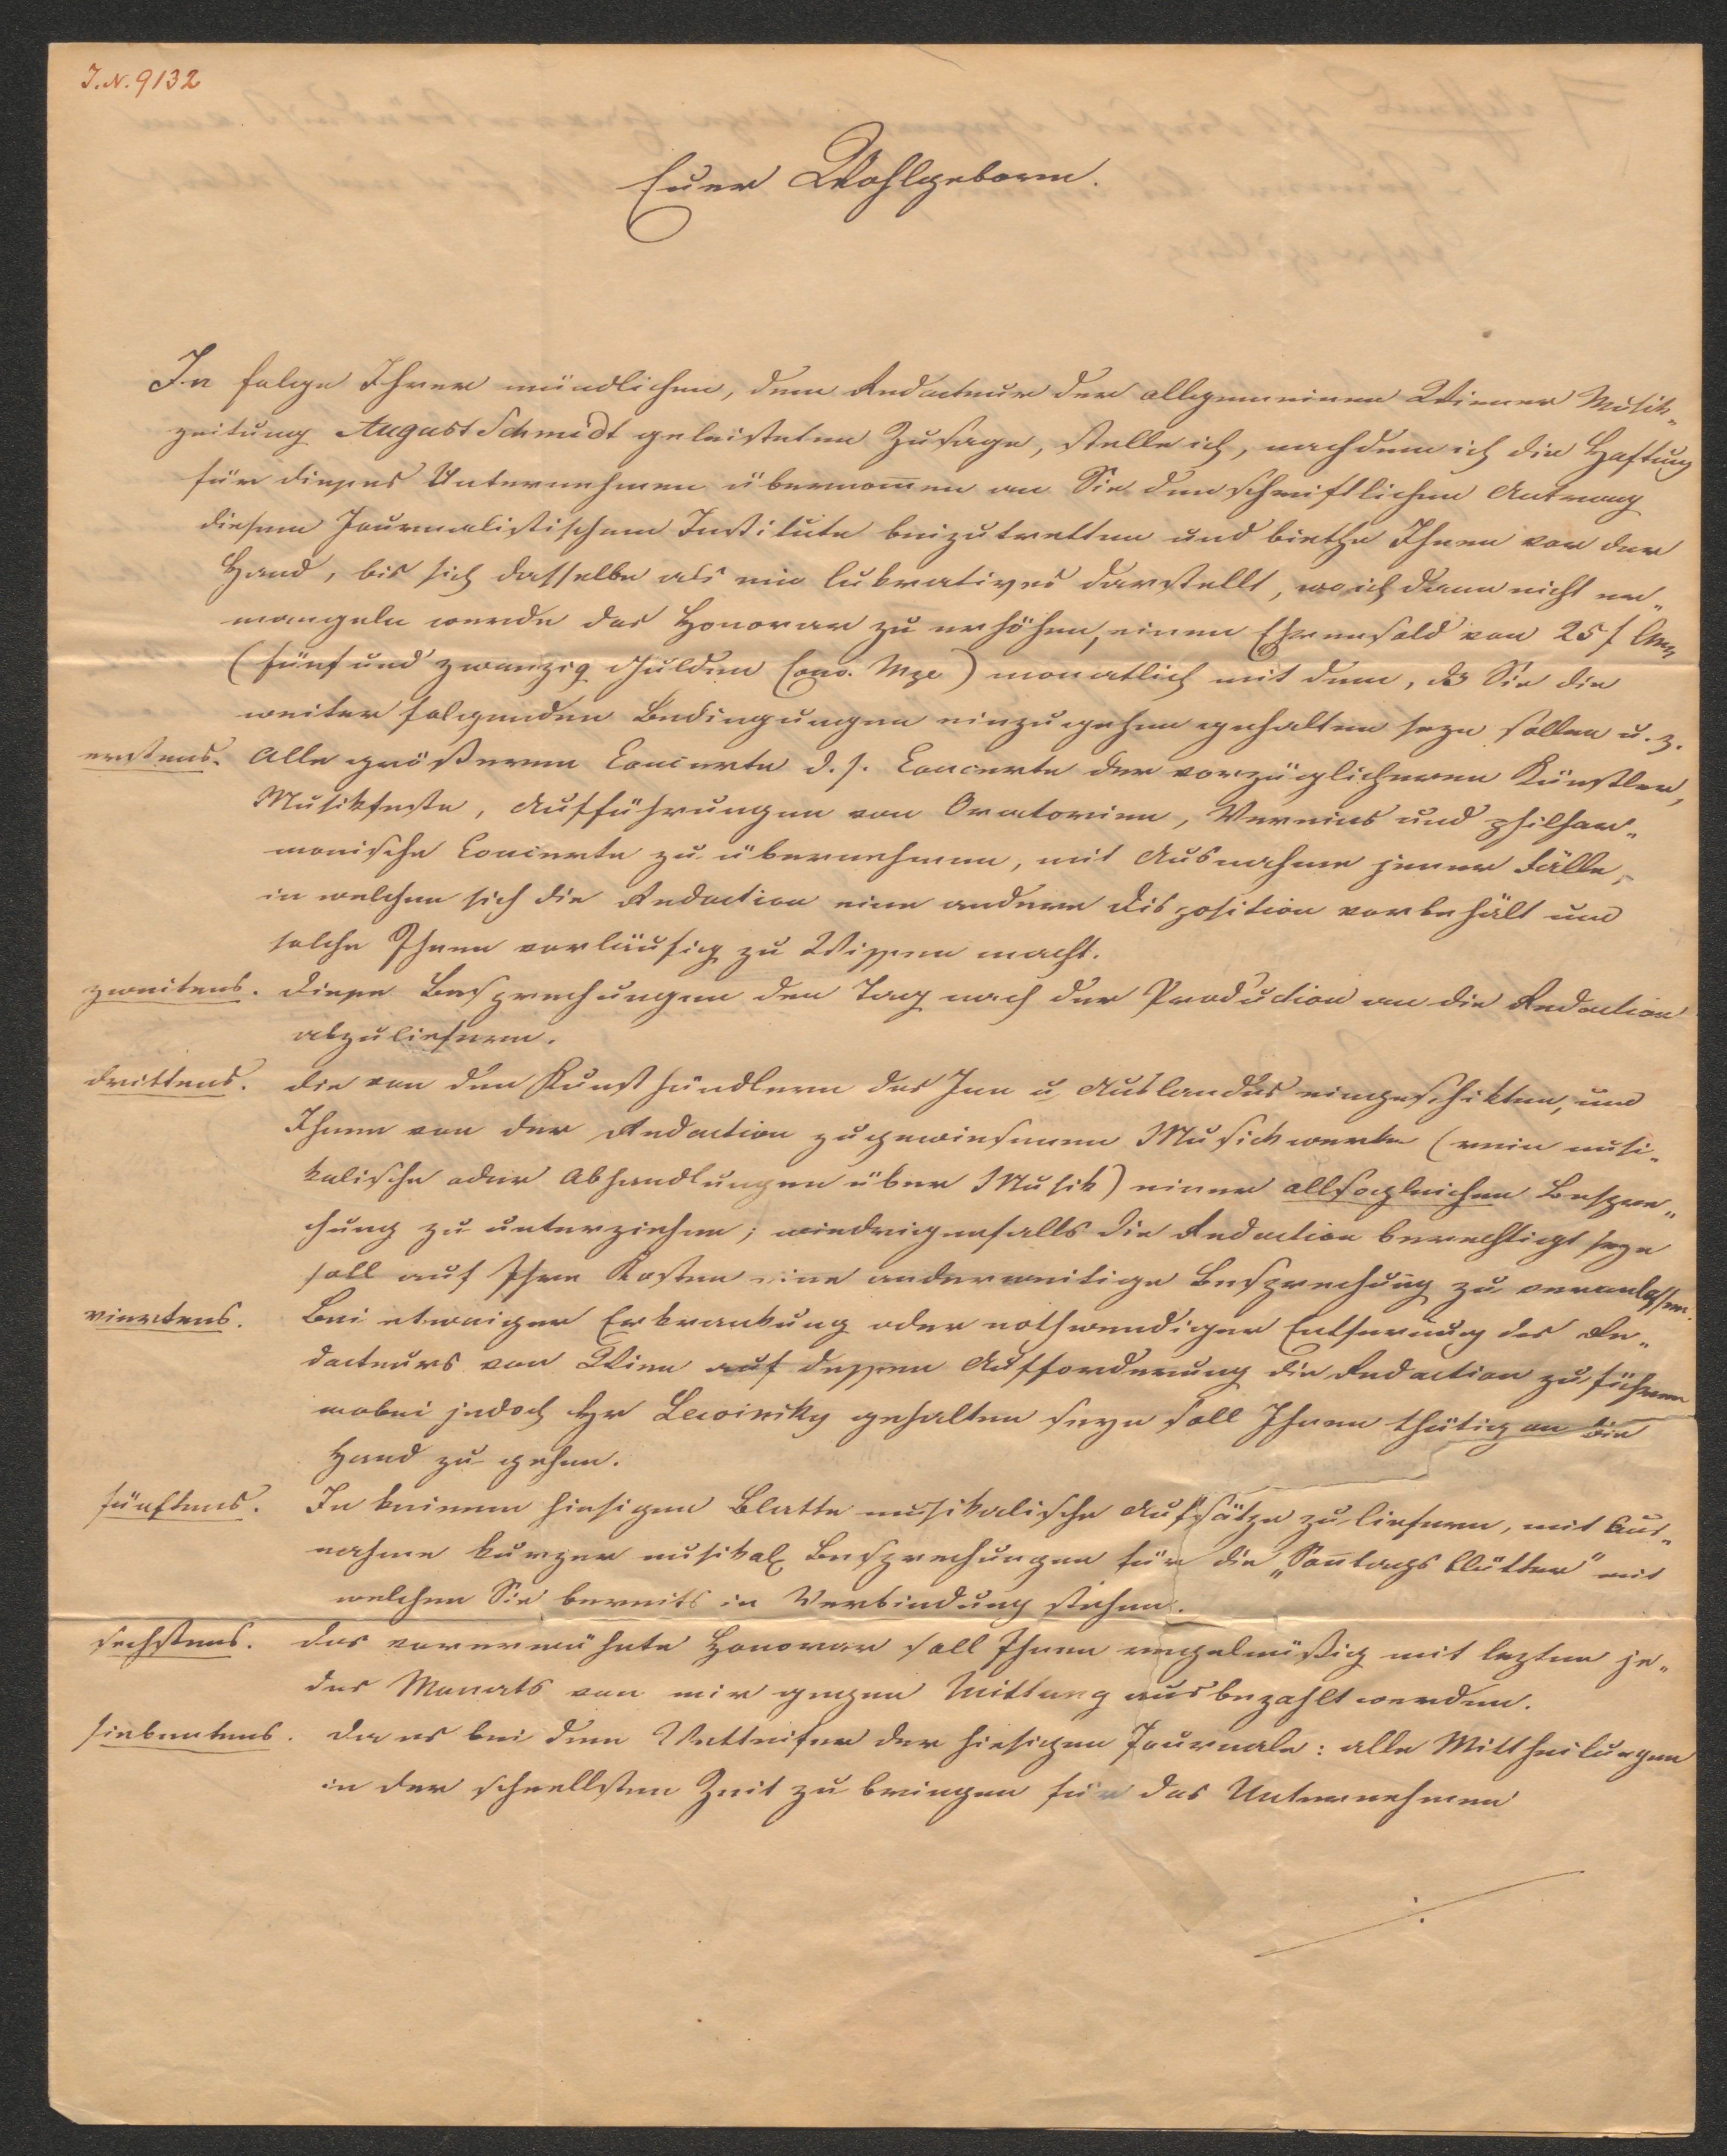 I.N. 9132
Euer Wohlgeboren.
In folge Ihrer mündlichen, dem Redacteur der allgemeinen Wiener Musik-
zeitung August Schmidt geleisteten Zusage, stelle ich, nachdem ich die Haftung
für dieses Unternehmen übernom̄en an Sie den schriftlichen Antrag
diesem Journalistischem Institute beizutretten und biethe Ihnen vor der
Hand, bis sich dasselbe als ein lukratives darstellt, wo ich dann nicht er-
mangeln werde das Honorar zu erhöhen, einen Ehrensold von 25 f CMz
(fünf und zwanzig Gulden Conv. Mze) monatlich mit dem, daß Sie die
weiter folgenden Bedingungen einzugehen gehalten seyn sollen u. z.
erstens. Alle größeren Concerte d. h. Concerte der vorzüglicheren Künstler,
Musikfeste, Aufführungen von Oratorien, Vereins und philhar-
monische Concerte zu übernehmen, mit Ausnahme jener Fälle,
in welchen sich die Redaction eine andere Disposition vorbehält und
solche Ihnen vorläufig zu Wissen macht.
zweitens. diese Besprechungen den Tag nach der Production an die Redaction
abzuliefern.
drittens. die von den Kunsthändlern des In u Auslandes eingeschikten, und
Ihnen von der Redaction zugewiesenen Musickwerke (rein musi-
kalische oder Abhandlungen über Musik) einer allsogleichen Bespre-
chung zu unterziehen; wiedrigenfalls die Redaction berechtigt seyn
soll auf Ihre Kosten eine anderweitige Besprechung zu veranlassen.
viertens. Bei etwaiger Erkrankung oder nothwendiger Entfernung des Re-
dacteurs von Wien auf dessen Aufforderung die Redaction zu führen
wobei jedoch Hr Lewinsky gehalten seyn soll Ihnen thätig an die
Hand zu gehen.
fünftens. In keinem hiesigen Blatte musikalische Aufsätze zu liefern, mit Aus-
nahme kurzer musikal Besprechungen für die „Son̄tags blätter" mit
welchen Sie bereits in Verbindung stehen.
sechstens. das vorerwähnte Honorar soll Ihnen regelmäßig mit lezten je-
des Monats von mir gegen Quittung ausbezahlt werden.
siebentens. da es bei dem Wetteifer der hiesigen Journale: alle Mittheilungen
in der schnellsten Zeit zu bringen für das Unternehmen